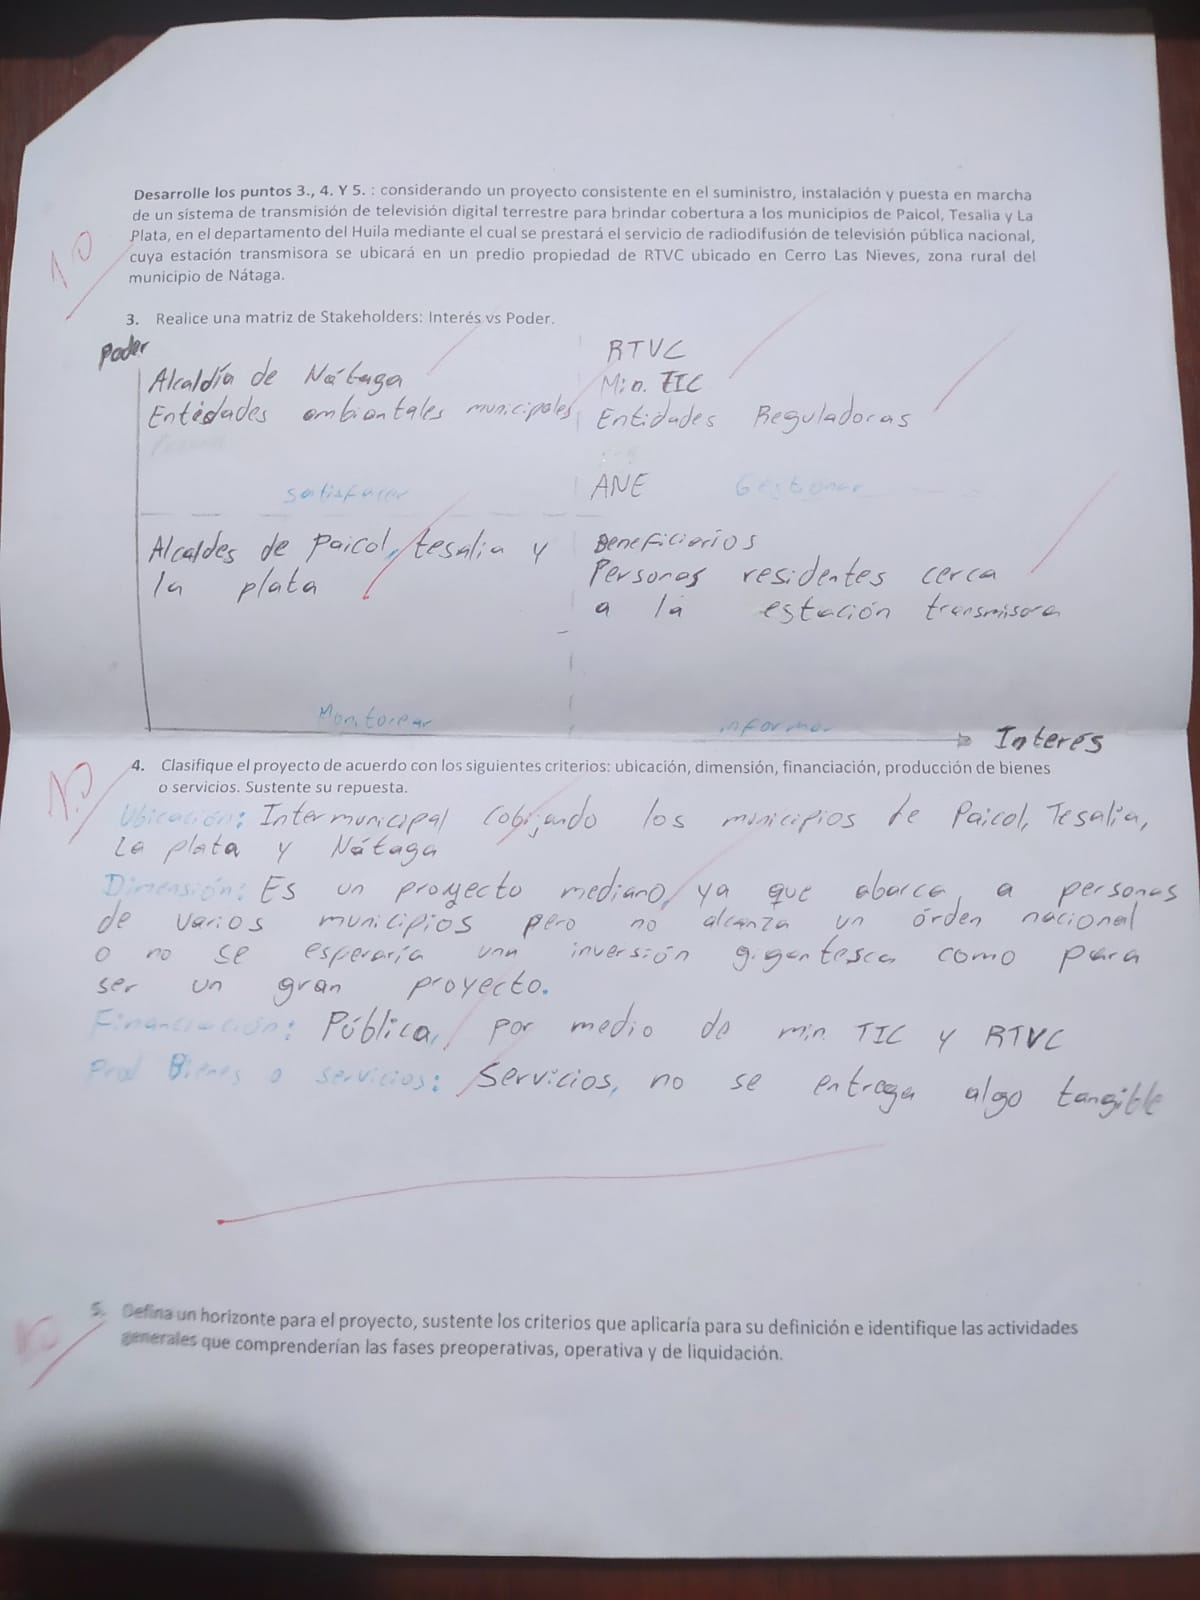 Desarrolle los puntos 3., 4. Y 5. : considerando un proyecto consistente en el suministro, instalación y puesta en marcha
de un sistema de transmisión de televisión digital terrestre para brindar cobertura a los municipios de Paicol, Tesalia y La
Plata, en el departamento del Huila mediante el cual se prestará el servicio de radiodifusión de televisión pública nacional,
cuya estación transmisora se ubicará en un predio propiedad de RTVC ubicado en Cerro Las Nieves, zona rural del
municipio de Nátaga.
1.0
3. Realice una matriz de Stakeholders: Interés vs Poder.
Poder
Alcaldía de Nátaga
Entidades ambientales municipales
Satisfacer
RTVC
Min. TIC
Entidades Reguladoras
ANE
Gestionar
Alcaldes de Paicol, tesalia y
la plata
Monitorear
Beneficiarios
Personas residentes cerca
a la estación transmisora
informar
Interés
1.0
4. Clasifique el proyecto de acuerdo con los siguientes criterios: ubicación, dimensión, financiación, producción de bienes
o servicios. Sustente su repuesta.
Ubicación: Intermunicipal cobijando los municipios de Paicol, Tesalia,
La plata y Nátaga
Dimensión: Es un proyecto mediano, ya que abarca a personas
de varios municipios pero no alcanza un órden nacional
o no se esperaría una inversión gigantesca como para
ser un gran proyecto.
Financiación: Pública, por medio de min TIC y RTVC
Prod Bienes o servicios: Servicios, no se entrega algo tangible
5. Defina un horizonte para el proyecto, sustente los criterios que aplicaría para su definición e identifique las actividades
generales que comprenderían las fases preoperativas, operativa y de liquidación.